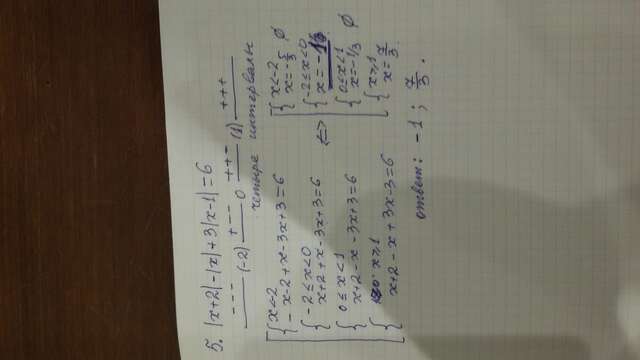 5. |x+2|-|x|+3|x-1|=6
--- (-2) +-- 0 ++- (1) +++
четыре интервалы
{x<-2
-x-2+x-3x+3=6
{-2≤x<0
x+2+x-3x+3=6
{0≤x<1
x+2-x-3x+3=6
{x≥1
x+2-x+3x-3=6
⇔
{x<-2
x=-5/3 ∅
{-2≤x<0
x=-1
{0≤x<1
x=-1/3 ∅
{x≥1
x=7/3
ответ: -1; 7/3.